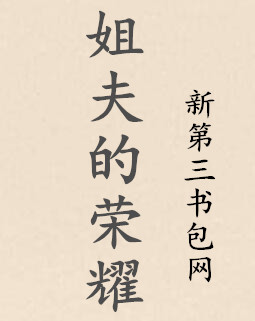 姐夫的荣耀
新第三书包网